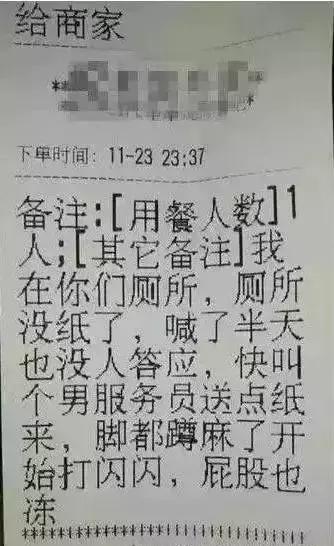 给商家
下单时间: 11-23 23:37
备注:[用餐人数]1
人;[其它备注]我
在你们厕所，厕所
没纸了，喊了半天
也没人答应，快叫
个男服务员送点纸
来，脚都蹲麻了开
始打闪闪，屁股也
冻
********************************